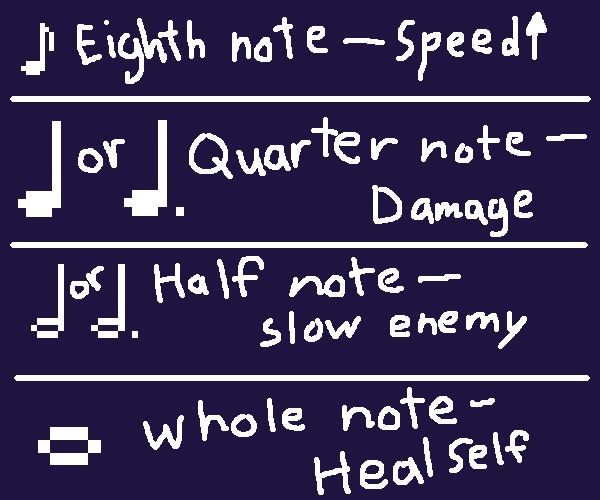 ♪ Eighth note - Speed↑
or Quarter note -
Damage
or Half note -
slow enemy
whole note -
Heal self